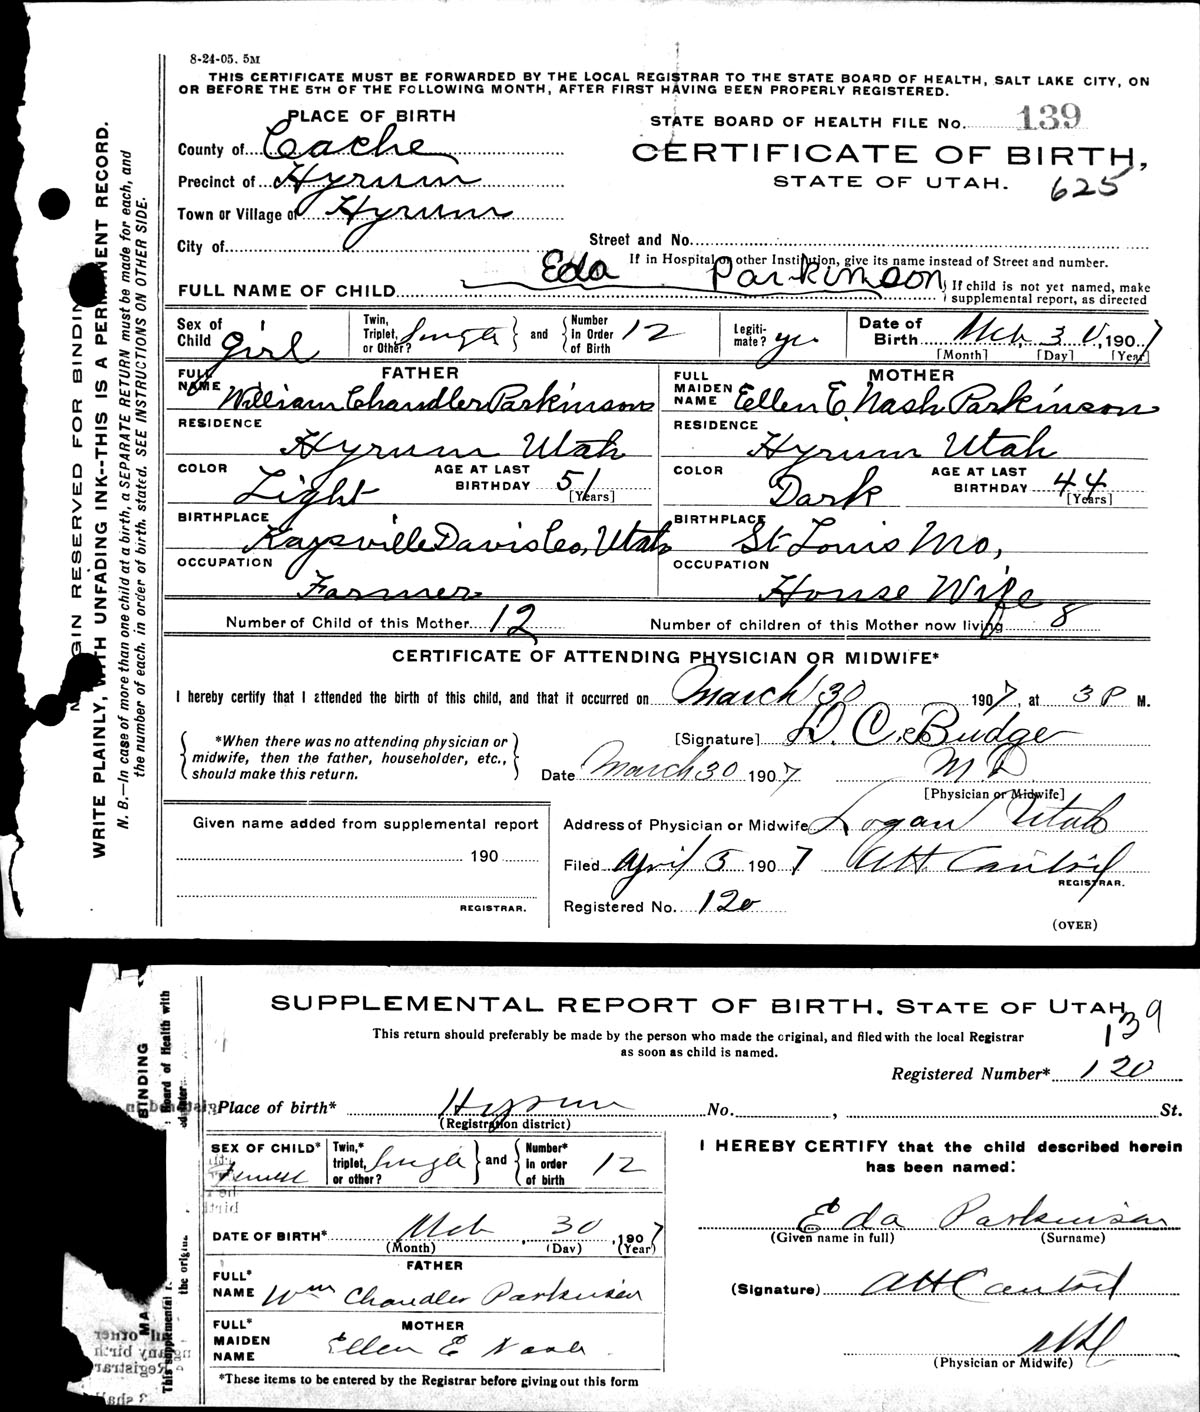 8-24-05. 5M
THIS CERTIFICATE MUST BE FORWARDED BY THE LOCAL REGISTRAR TO THE STATE BOARD OF HEALTH, SALT LAKE CITY, ON
OR BEFORE THE 5TH OF THE FOLLOWING MONTH, AFTER FIRST HAVING BEEN PROPERLY REGISTERED.
PLACE OF BIRTH
STATE BOARD OF HEALTH FILE No. 139
County of Cache
CERTIFICATE OF BIRTH,
Precinct of Hyrum
STATE OF UTAH. 625
Town or Village of Hyrum
City of
Street and No.
If in Hospital or other Institution, give its name instead of Street and number.
FULL NAME OF CHILD Eda Parkinson
If child is not yet named, make
supplemental report, as directed
Sex of Child girl
Twin, Triplet, or Other? Single and Number In Order of Birth 12
Legiti-mate? yes
Date of Birth Mch 30, 1907
[Month] [Day] [Year]
FATHER
FULL NAME William Chandler Parkinson
RESIDENCE
Hyrum Utah
COLOR Light AGE AT LAST BIRTHDAY 51 [Years]
BIRTHPLACE
Kaysville Davis Co, Utah
OCCUPATION
Farmer
MOTHER
FULL MAIDEN NAME Ellen E. Nash Parkinson
RESIDENCE
Hyrum Utah
COLOR Dark AGE AT LAST BIRTHDAY 44 [Years]
BIRTHPLACE
St Louis Mo,
OCCUPATION
House Wife
Number of Child of this Mother 12 Number of children of this Mother now living 8
CERTIFICATE OF ATTENDING PHYSICIAN OR MIDWIFE*
I hereby certify that I attended the birth of this child, and that it occurred on March 30 1907, at 3 P M.
*When there was no attending physician or
midwife, then the father, householder, etc.,
should make this return.
[Signature] D. C. Budge
Date March 30 1907 M D
[Physician or Midwife]
Given name added from supplemental report
190
REGISTRAR.
Address of Physician or Midwife Logan Utah
Filed April 5 1907
REGISTRAR.
Registered No. 120
(OVER)
GIN RESERVED FOR BINDIN
WRITE PLAINLY, WITH UNFADING INK--THIS IS A PERMANENT RECORD.
N. B.—In case of more than one child at a birth, a SEPARATE RETURN must be made for each, and
the number of each, in order of birth, stated. SEE INSTRUCTIONS ON OTHER SIDE.
SUPPLEMENTAL REPORT OF BIRTH, STATE OF UTAH
139
This return should preferably be made by the person who made the original, and filed with the local Registrar
as soon as child is named.
Registered Number* 120
Place of birth* Hyrum No. , St.
(Registration district)
SEX OF CHILD*
Twin,* triplet, or other? Single and Number* in order of birth 12
DATE OF BIRTH* Mch 30, 1907
(Month) (Day) (Year)
FATHER
FULL* NAME Wm Chandler Parkinson
MOTHER
FULL* MAIDEN NAME Ellen E Nash
*These items to be entered by the Registrar before giving out this form
I HEREBY CERTIFY that the child described herein
has been named:
Eda Parkinson
(Given name in full) (Surname)
(Signature)
(Physician or Midwife)
BINDING
Board of Health with